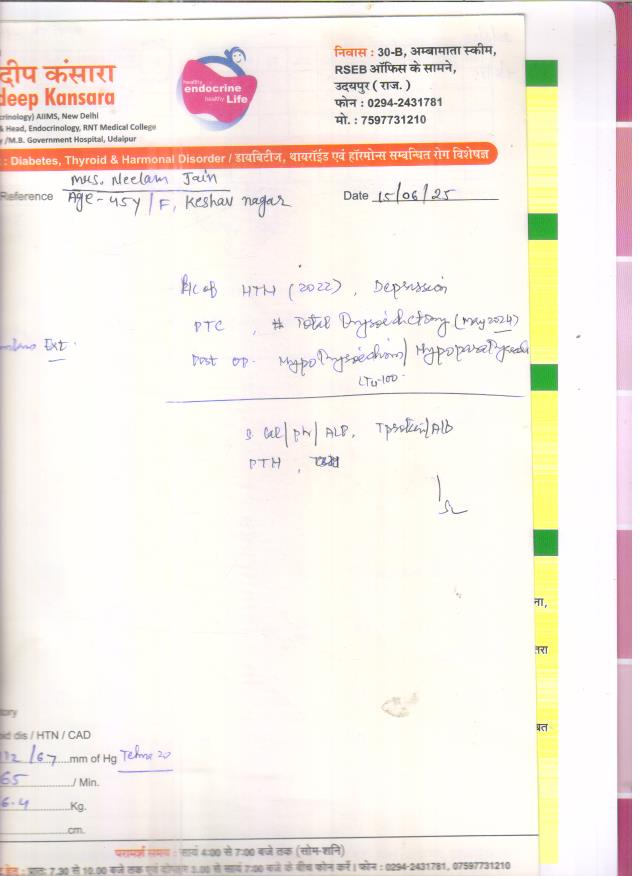 दीप कंसारा
deep Kansara
crinology) AIIMS, New Delhi
& Head, Endocrinology, RNT Medical College
/M.B. Government Hospital, Udaipur
healthy
endocrine
healthy Life
निवास : 30-B, अम्बामाता स्कीम,
RSEB ऑफिस के सामने,
उदयपुर ( राज. )
फोन : 0294-2431781
मो. : 7597731210
: Diabetes, Thyroid & Harmonal Disorder / डायबिटीज, थायरॉईड एवं हॉरमोन्स सम्बन्धित रोग विशेषज्ञ
Mrs. Neelam Jain
Reference Age - 45y / F, Keshav nagar Date 15/06/25
HTN (2022), Depression
PTC, # Total Thyroidectomy (May 2024)
Ext.
Post op. Hypothyroidism / Hypoparathyroid
LT4-100
S. Cal / ph / ALP, Tprotein/Alb
PTH,
ना,
तरा
बत
tory
oid dis / HTN / CAD
112 / 67 mm of Hg Telma 20
65 / Min.
6.4 Kg.
cm.
परामर्श समय : सायं 4:00 से 7:00 बजे तक (सोम-शनि)
प्रातः 7.30 से 10.00 बजे तक एवं दोपहर 3.00 से सायं 7:00 बजे के बीच फोन करें। फोन : 0294-2431781, 07597731210